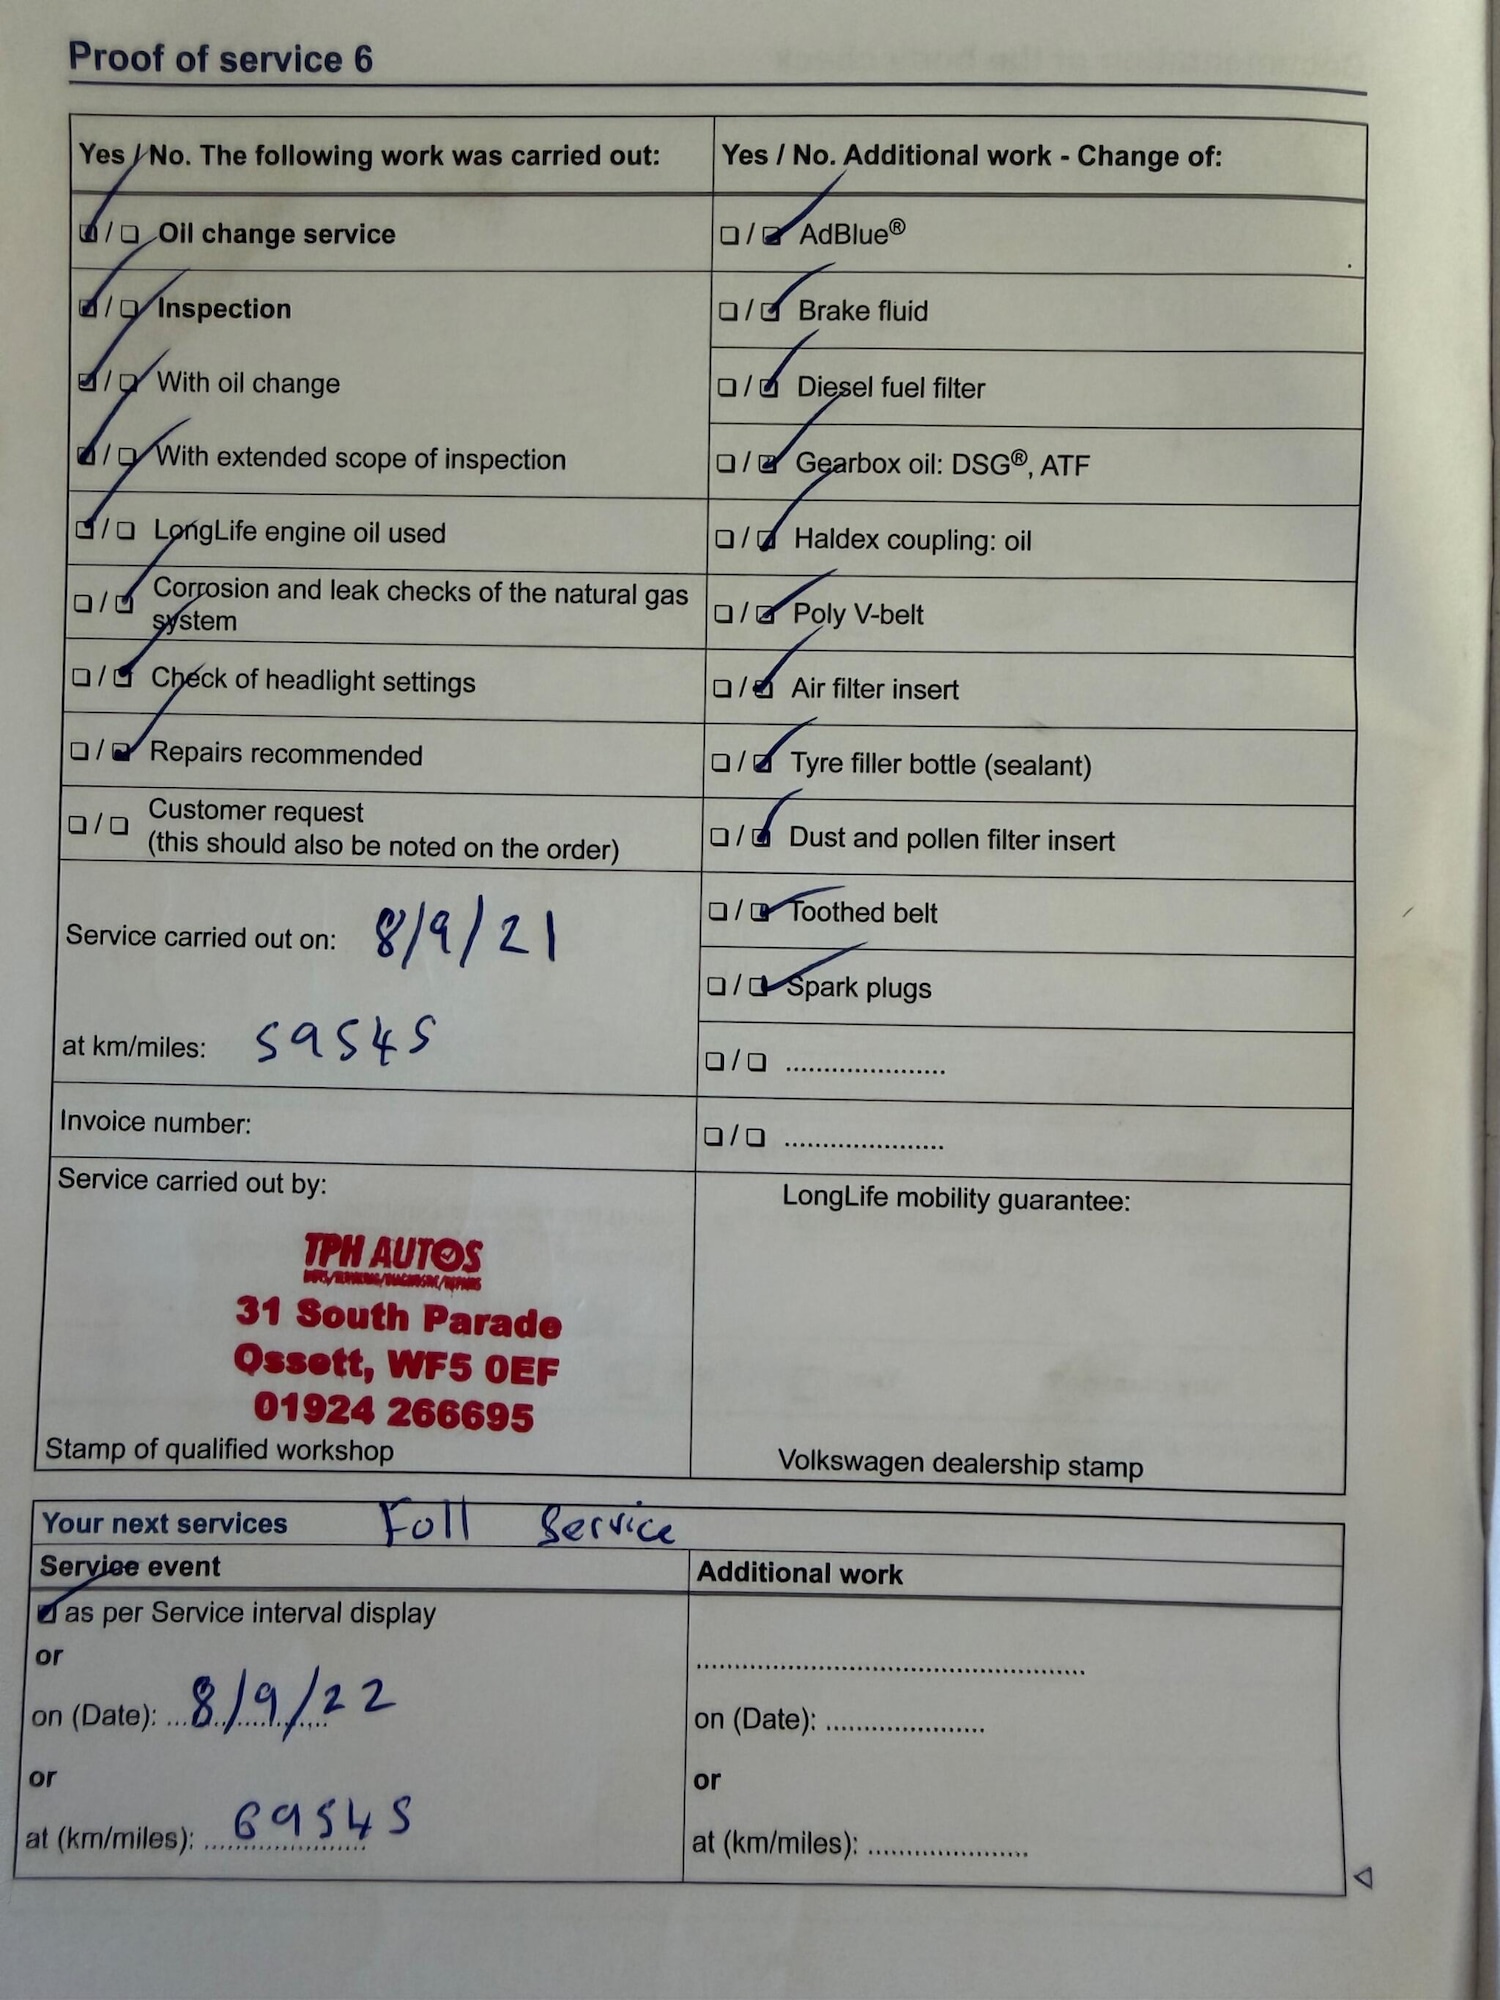 Proof of service 6
Yes / No. The following work was carried out:
☑ / ☐ Oil change service
☑ / ☐ Inspection
☑ / ☐ With oil change
☑ / ☐ With extended scope of inspection
☑ / ☐ LongLife engine oil used
☐ / ☑ Corrosion and leak checks of the natural gas
system
☐ / ☑ Check of headlight settings
☐ / ☑ Repairs recommended
☐ / ☐ Customer request
(this should also be noted on the order)
Service carried out on: 8/9/21
at km/miles: 59545
Invoice number:
Service carried out by:
TPH AUTOS
31 South Parade
Ossett, WF5 0EF
01924 266695
Stamp of qualified workshop
Yes / No. Additional work - Change of:
☐ / ☑ AdBlue®
☐ / ☑ Brake fluid
☐ / ☑ Diesel fuel filter
☐ / ☑ Gearbox oil: DSG®, ATF
☐ / ☑ Haldex coupling: oil
☐ / ☑ Poly V-belt
☐ / ☑ Air filter insert
☐ / ☑ Tyre filler bottle (sealant)
☐ / ☑ Dust and pollen filter insert
☐ / ☑ Toothed belt
☐ / ☑ Spark plugs
☐ / ☐ ......................
☐ / ☐ ......................
LongLife mobility guarantee:
Volkswagen dealership stamp
Your next services Full Service
Service event
☑ as per Service interval display
or
on (Date): 8/9/22
or
at (km/miles): 69545
Additional work
......................................................
on (Date): ......................
or
at (km/miles): ......................